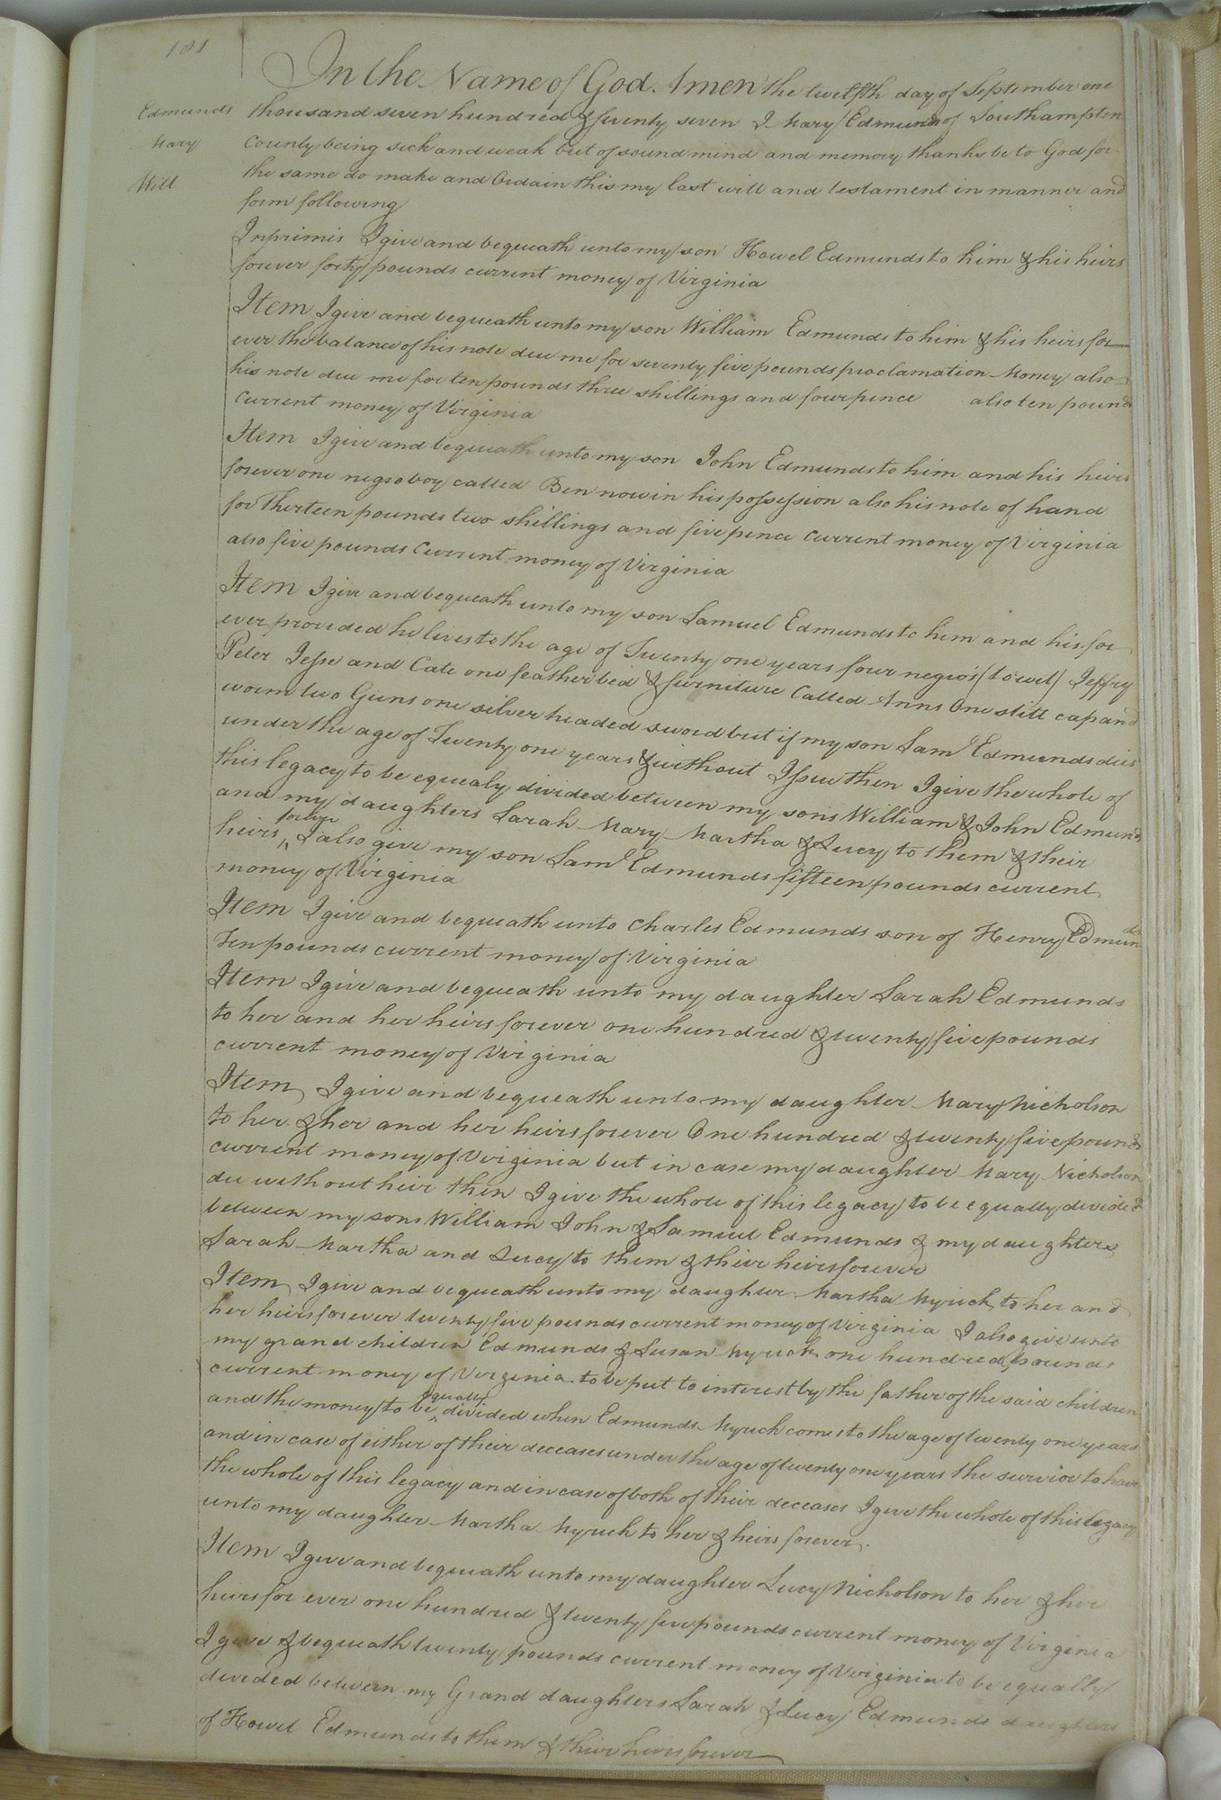 181
Edmunds
Mary
Will
In the Name of God. Amen the twelfth day of September one
thousand seven hundred & seventy seven I Mary Edmunds of Southampton
County being sick and weak but of sound mind and memory thanks be to God for
the same do make and Ordain this my last will and testament in manner and
form following
Inprimis I give and bequeath unto my son Howel Edmunds to him & his heirs
forever forty pounds current money of Virginia
Item I give and bequeath unto my son William Edmunds to him & his heirs for
ever the balance of his note due me for seventy five pounds proclamation Money also
his note due me for ten pounds three shillings and four pence also ten pounds
current money of Virginia
Item I give and bequeath unto my son John Edmunds to him and his heirs
forever one negro boy called Ben now in his possession also his note of hand
for Thirteen pounds two shillings and five pence current money of Virginia
also five pounds Current money of Virginia
Item I give and bequeath unto my son Samuel Edmunds to him and his for
ever provided he lives to the age of Twenty one years four negros (to wit) Jeffry
Peter Jesse and Cate one feather bed & furniture Called Anns One still cap and
worm two Guns one silver headed sword but if my son Saml Edmunds dies
under the age of Twenty one years & without Issue then I give the whole of
this legacy to be equealy divided between my sons William & John Edmunds
and my daughters Sarah Mary Martha & Lucy to them & their
heirs forever I also give my son Saml Edmunds fifteen pounds current
money of Virginia
Item I give and bequeath unto Charles Edmunds son of Henry Edmunds
Ten pounds current money of Virginia
Item I give and bequeath unto my daughter Sarah Edmunds
to her and her heirs forever one hundred & twenty five pounds
current money of Virginia
Item I give and bequeath unto my daughter Mary Nicholson
to her & her and her heirs forever One hundred & twenty five pounds
current money of Virginia but in case my daughter Mary Nicholson
die without heir then I give the whole of this legacy to be equally divided
between my sons William John & Samuel Edmunds & my daughters
Sarah Martha and Lucy to them & their heirs forever
Item I give and bequeath unto my daughter Martha Myrick to her and
her heirs forever twenty five pounds current money of Virginia I also give unto
my grand children Edmunds & Susan Myrick one hundred pounds
current money of Virginia to be put to interest by the father of the said children
and the money to be equally divided when Edmunds Myrick comes to the age of twenty one years
and in case of either of their deceases under the age of twenty one years the survivor to have
the whole of this legacy and in case of both of their deceases I give the whole of this legacy
unto my daughter Martha Myrick to her & heirs forever.
Item I give and bequeath unto my daughter Lucy Nicholson to her & her
heirs for ever one hundred & twenty five pounds current money of Virginia
I give & bequeath twenty pounds current money of Virginia to be equally
divided between my Grand daughters Sarah & Lucy Edmunds daughters
of Howel Edmunds to them & their heirs forever